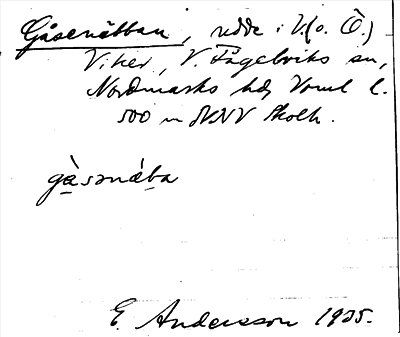 Gåsenäbban, udde i V. (o. Ö.)
Viker, V. Fågelviks sn,
Nordmarks hd, Vrml l.
500 m NNV Skolh.
gàsənába
E. Andersson 1925.